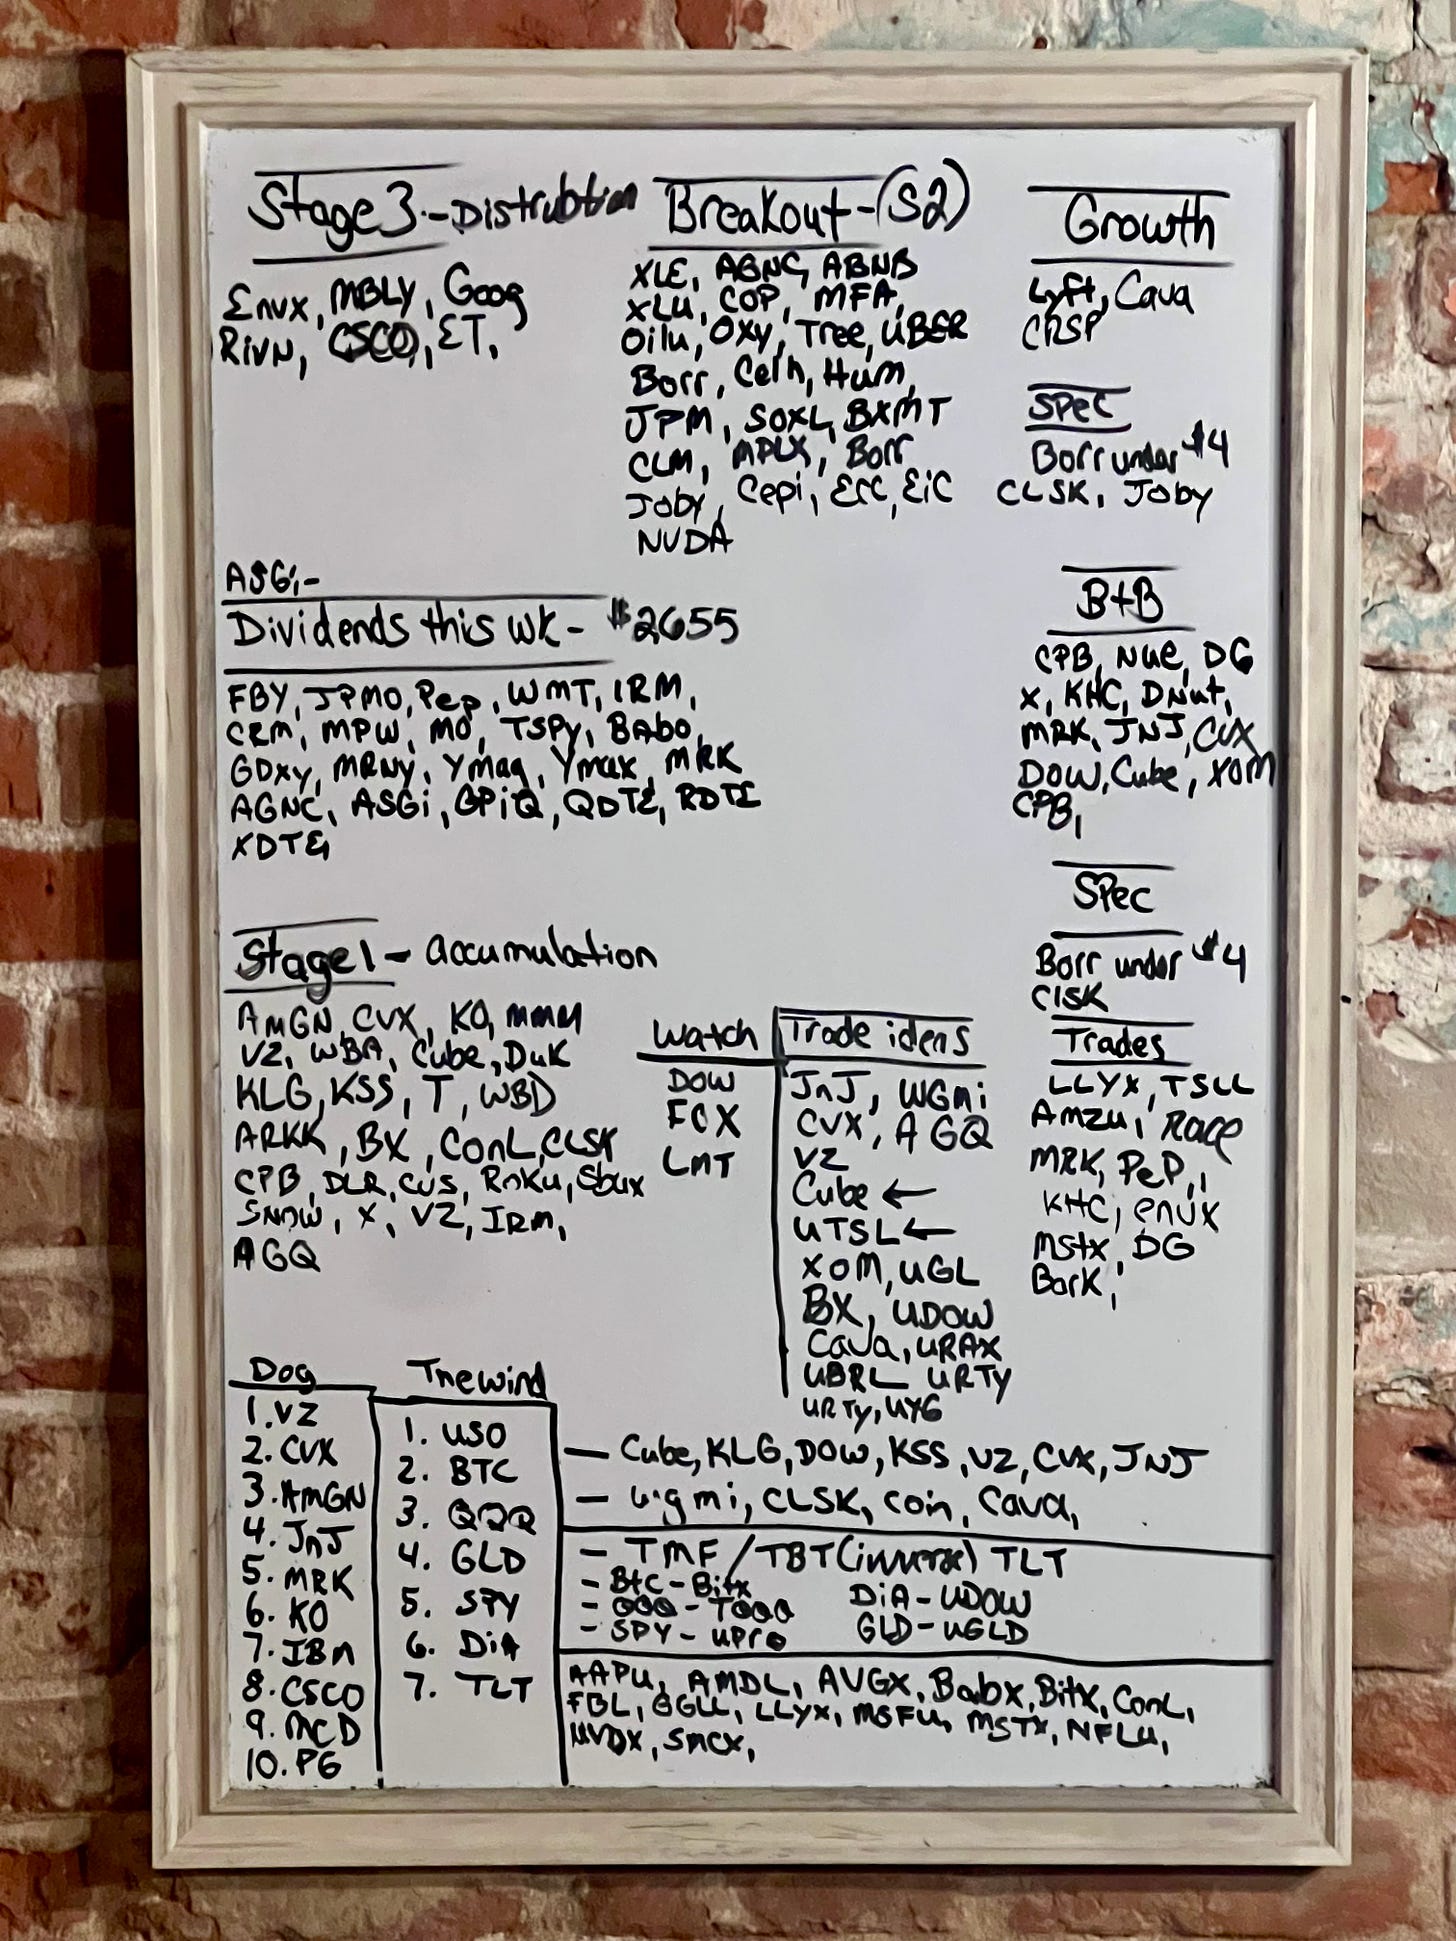 Stage 3 - Distrubtion
Envx, MBLY, Goog
Rivn, CSCO, ET,
Breakout - (S2)
XLE, AGNC, ABNB
XLU, COP, MFA,
Oilu, Oxy, Tree, UBER
Borr, Celh, Hum,
JPM, SOXL, BXMT
CLM, MPLX, Borr
Joby, Cepi, ECC, EiC
NVDA
Growth
Lyft, Cava
CRSP
Spec
Borr under $4
CLSK, Joby
ASGi -
Dividends this wk - $2655
FBY, JPMO, Pep, WMT, IRM,
CRM, MPW, MO, TSPY, Babo,
GDXY, MRNY, Ymag, Ymax, MRK
AGNC, ASGi, GPiQ, QDTE, RDTE
XDTE,
B+B
CPB, Nue, DG
X, KHC, DNut,
MRK, JNJ, CVX
DOW, Cube, XOM
CPB,
Spec
Borr under $4
ClSK
Trades
LLYX, TSLL
Amzu, Race
MRK, PeP,,
KHC, envx
MStx, DG
BorK,
Stage 1 - accumulation
AmGN, CVX, KO, MMM
VZ, WBA, Cube, Duk
KLG, KSS, T, WBD
ARKK, BX, ConL, CLSK
CPB, DLR, CVS, RoKu, Sbux
SNOW, X, VZ, IRM,
AGQ
Watch
DOW
FCX
LMT
Trade ideas
JnJ, WGmi
CVX, AGQ
VZ
Cube ←
UTSL ←
XOM, UGL
BX, UDOW
Cava, URAX
UBRL URTY
URTy, UYG
Dog
1. VZ
2. CVX
3. AMGN
4. JnJ
5. MRK
6. KO
7. IBM
8. CSCO
9. MCD
10. PG
Tnewind
1. USO
2. BTC
3. QQQ
4. GLD
5. SPY
6. DiA
7. TLT
- Cube, KLG, DOW, KSS, VZ, CVX, JNJ
- wgmi, CLSK, coin, Cava,
- TMF / TBT (inverse) TLT
- BtC - Bitx DiA - UDOW
- QQQ - TQQQ GLD - UGLD
- SPY - UPro
AAPU, AMDL, AVGX, Babx, Bitx, ConL,
FBL, GGLL, LLYX, MSFU, MSTX, NFLU,
NVDX, SMCX,